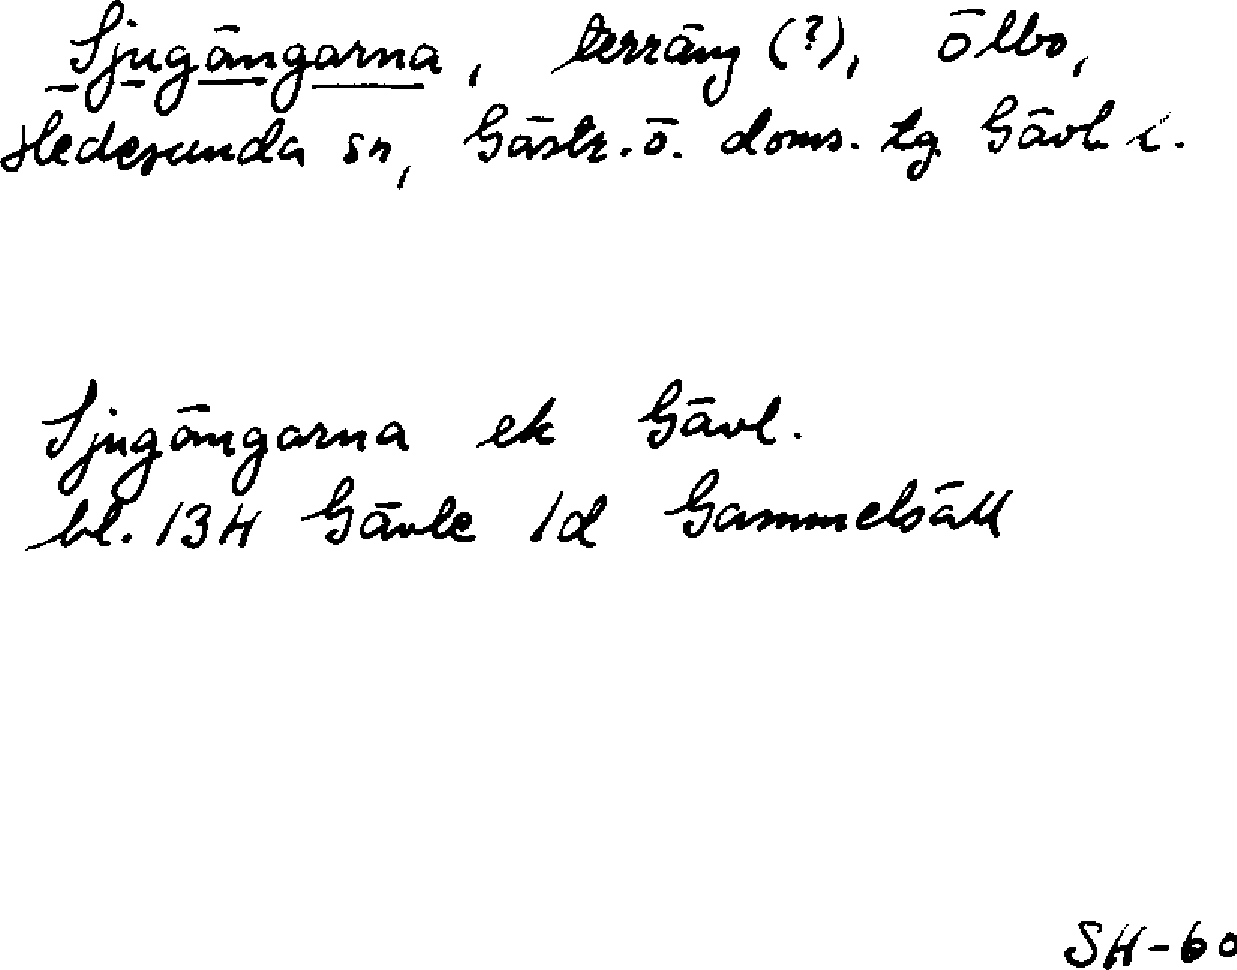 Sjugängarna, terräng (?), Ölbo,
Hedesunda sn, Gästr. ö. doms. tg Gävl. l.
Sjugängarna ek Gävl.
bl. 134 Gävle 1d Gammelsäll
SH-60